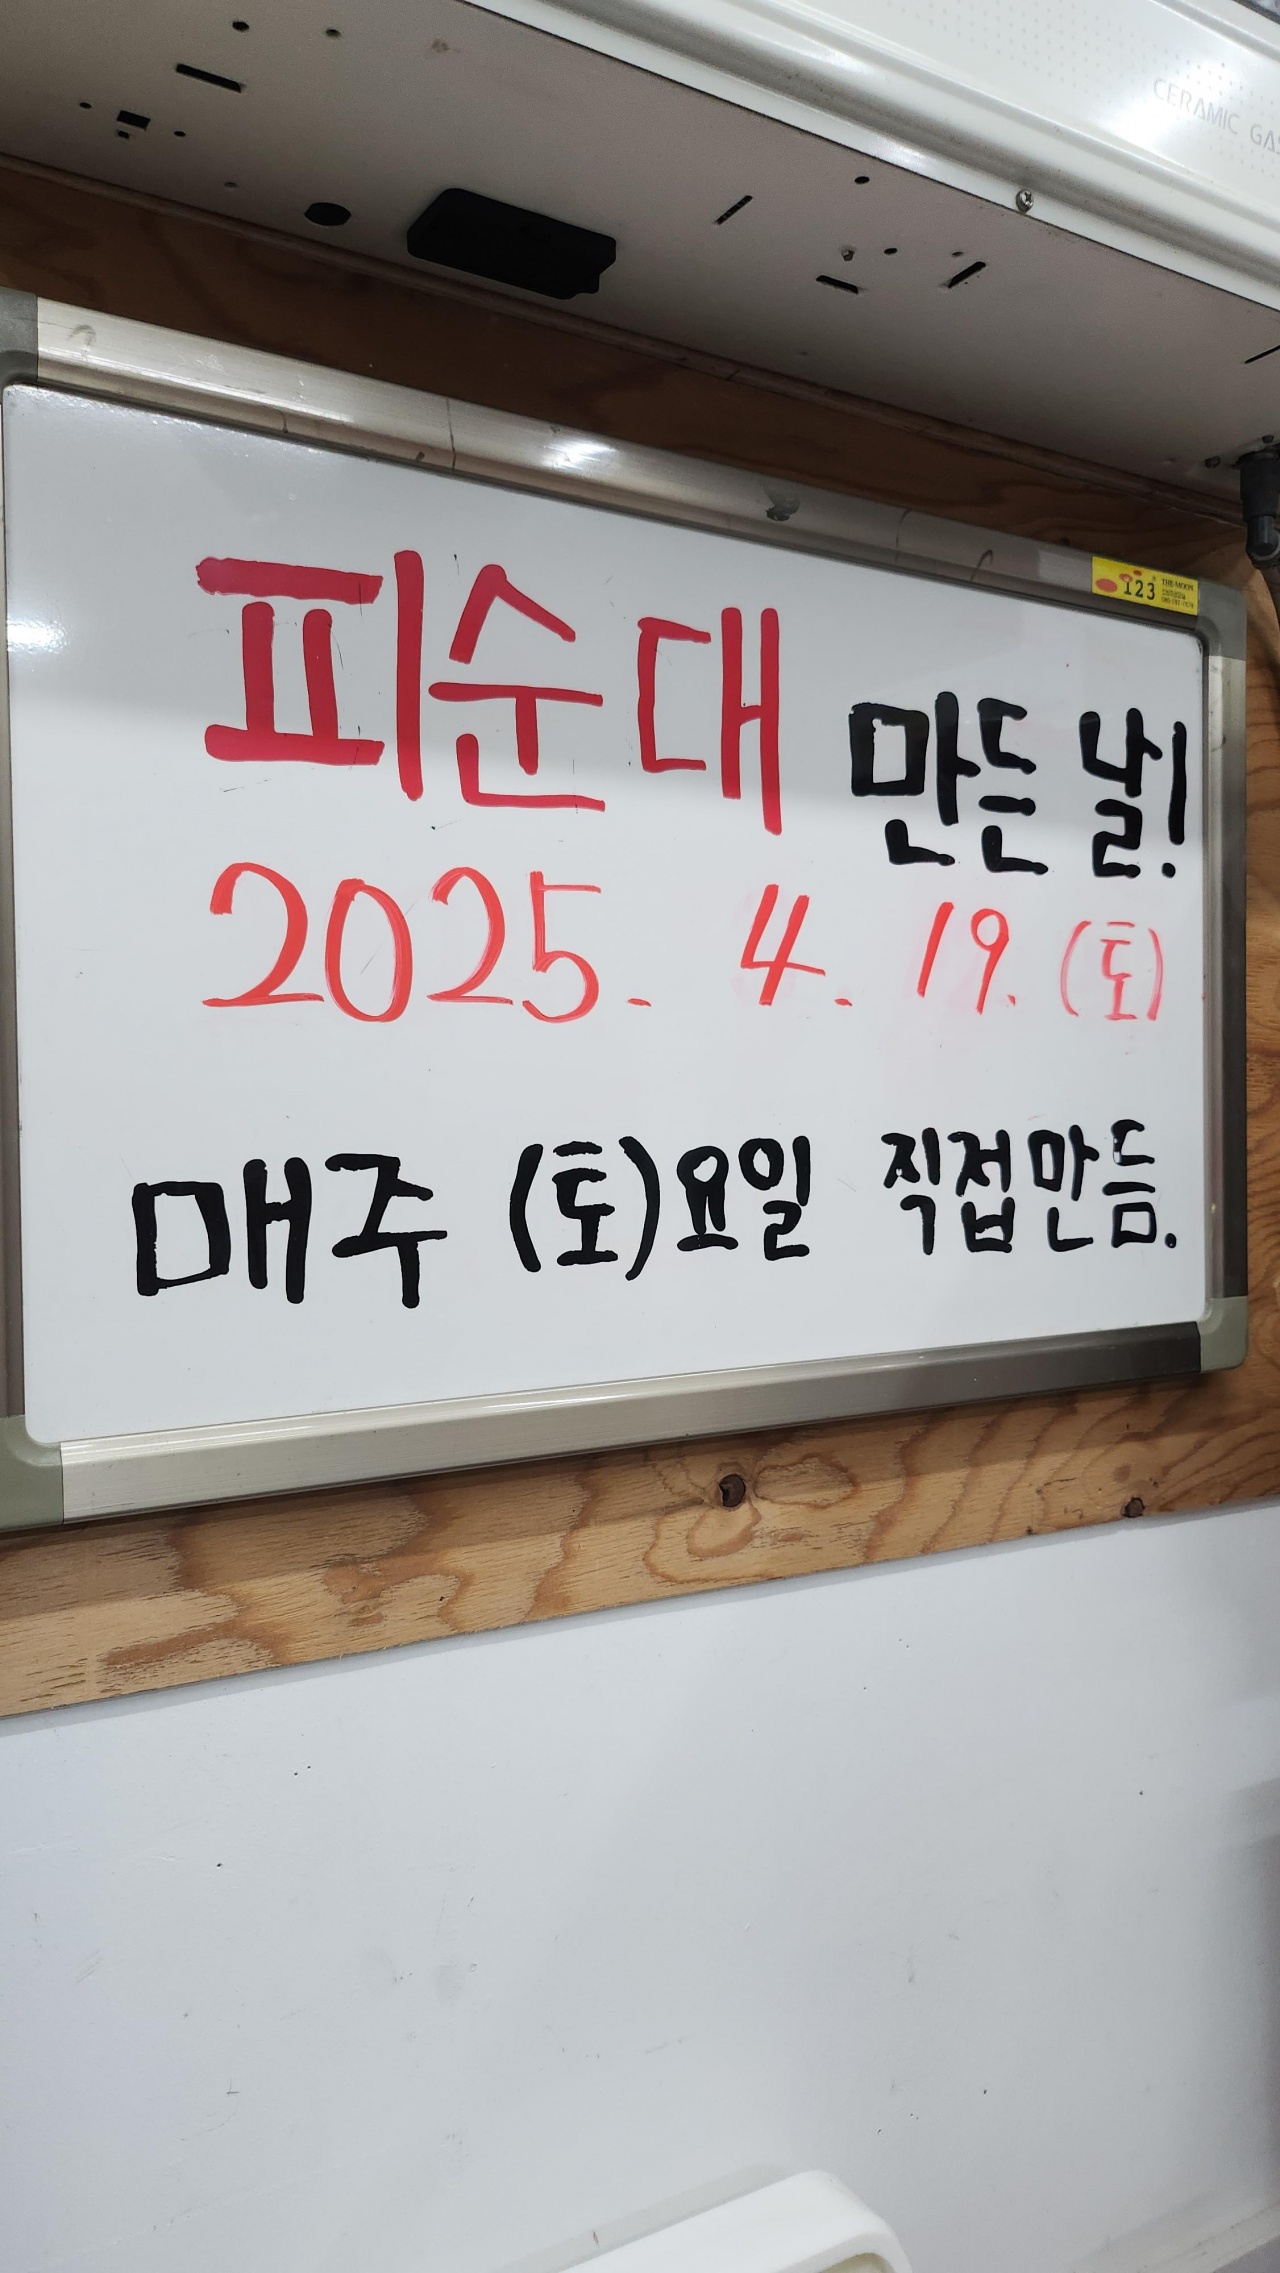 CERAMIC GAS
123 THE MOON
피순대 만든 날!
2025. 4. 19. (토)
매주 (토)요일 직접만듬.